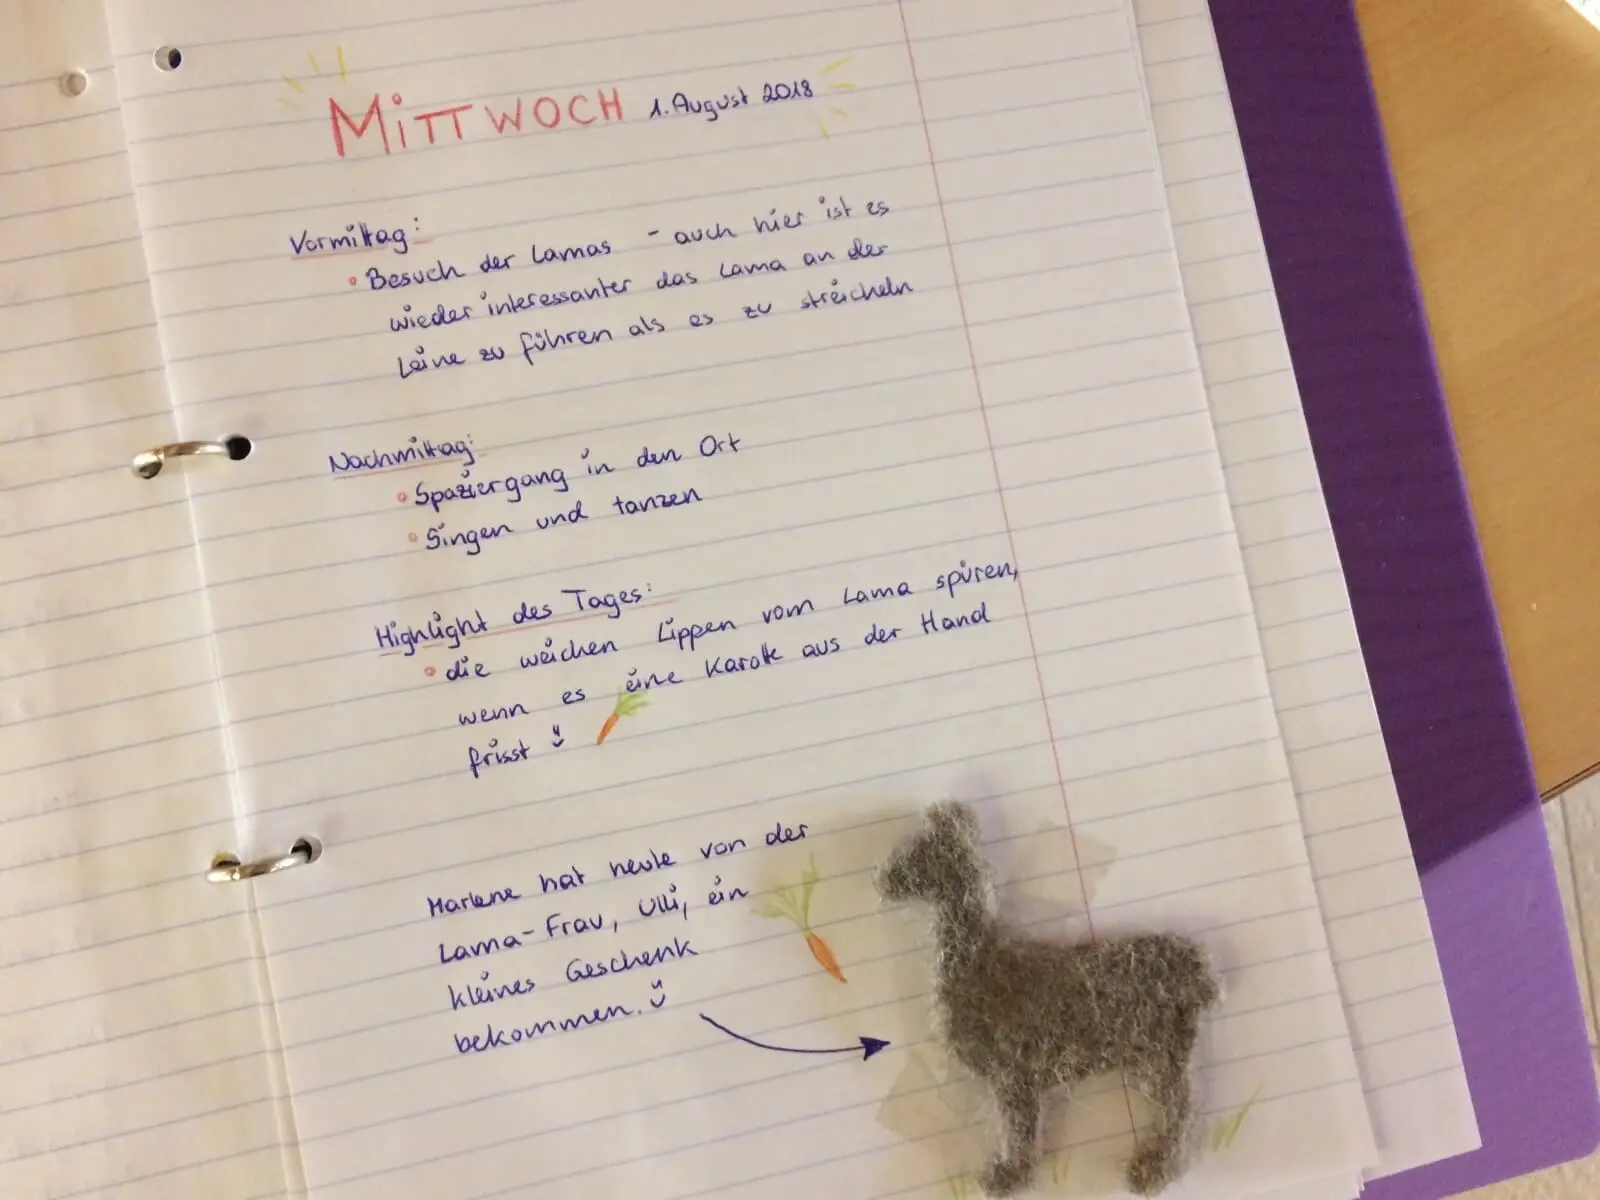 MITTWOCH 1. August 2018
Vormittag:
• Besuch der Lamas - auch hier ist es
wieder interessanter das Lama an der
Leine zu führen als es zu streicheln
Nachmittag:
• Spaziergang in den Ort
• Singen und tanzen
Highlight des Tages:
• die weichen Lippen vom Lama spüren,
wenn es eine Karotte aus der Hand
frisst
Marlene hat heute von der
Lama-Frau, Ulli, ein
kleines Geschenk
bekommen.